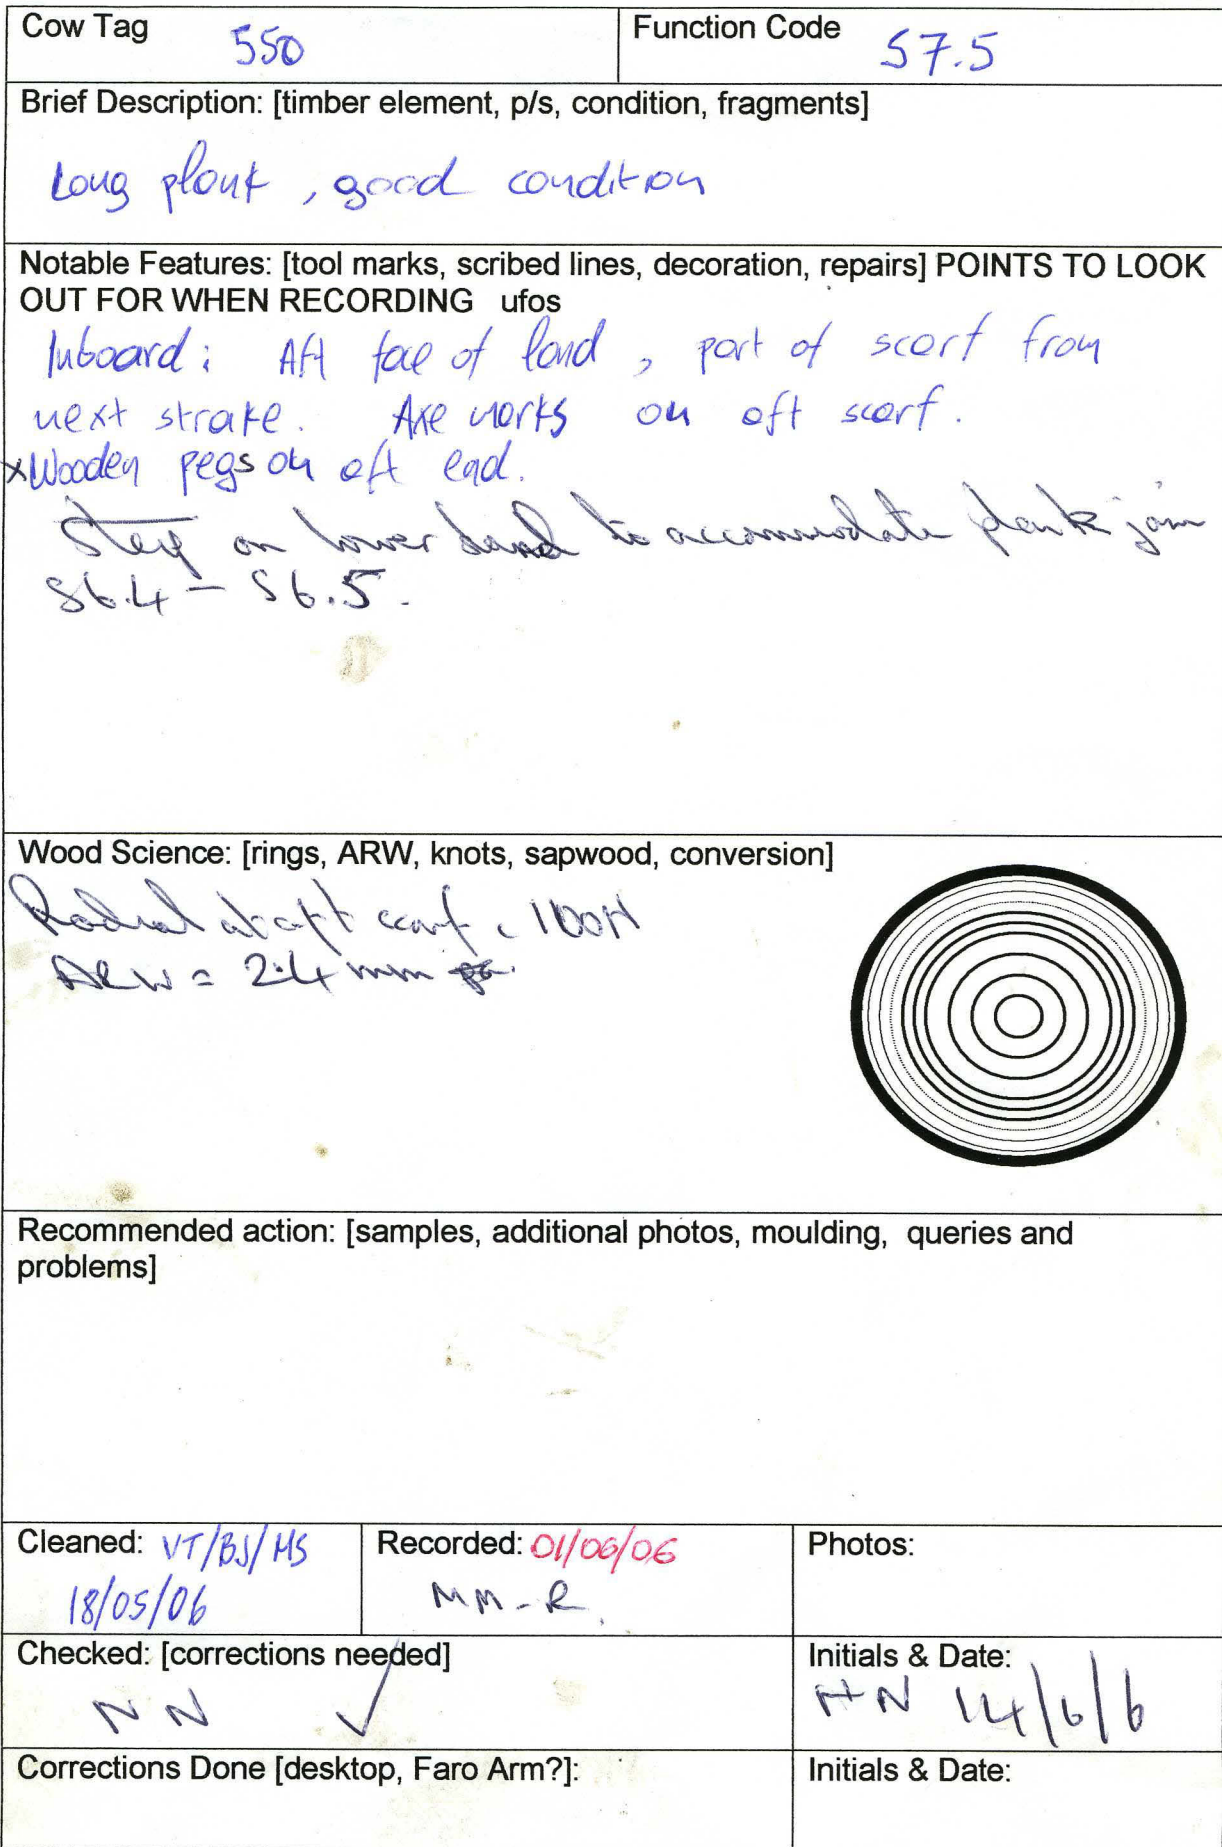 Cow Tag 550 Function Code S7.5
Brief Description: [timber element, p/s, condition, fragments]
Long plank, good condition
Notable Features: [tool marks, scribed lines, decoration, repairs] POINTS TO LOOK
OUT FOR WHEN RECORDING ufos
Inboard: Aft face of land, part of scarf from
next strake. Axe marks on aft scarf.
x Wooden pegs on aft end.
Step on lower land to accommodate plank join
S6.4 - S6.5.
Wood Science: [rings, ARW, knots, sapwood, conversion]
Radial at aft scarf
ARW = 2.4 mm
Recommended action: [samples, additional photos, moulding, queries and
problems]
Cleaned: VT/BJ/MS Recorded: 01/06/06 Photos:
18/05/06 MM-R.
Checked: [corrections needed] Initials & Date:
NN ✓ NN 14/6/6
Corrections Done [desktop, Faro Arm?]: Initials & Date: